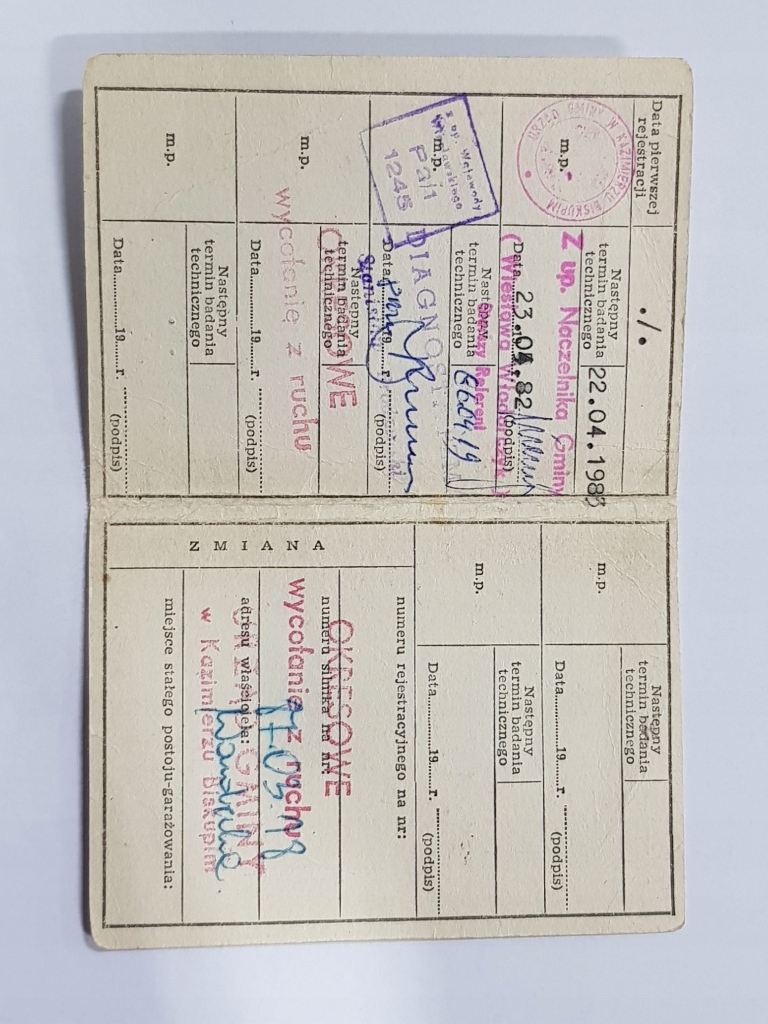 Data pierwszej
rejestracji
./.
URZĄD GMINY W KAZIMIERZU BISKUPIM
m.p.
Następny
termin badania
technicznego
22.04.1983
Z up. Naczelnika Gminy
Data 23.04.82
(podpis)
Z up. Wojewody
Włocławskiego
m.p.
1245
Następny
termin badania
technicznego
DIAGNOS
Data 19 r.
m.p.
Następny
termin badania
technicznego
OKRESOWE
wycofanie z ruchu
Data........19......r.
(podpis)
m.p.
Następny
termin badania
technicznego
Data........19......r.
(podpis)
m.p.
Następny
termin badania
technicznego
Data........19......r.
(podpis)
m.p.
Następny
termin badania
technicznego
Data........19......r.
(podpis)
ZMIANA
numeru rejestracyjnego na nr:
OKRESOWE
numeru silnika na nr:
wycofanie z ruchu
adresu właściciela:
URZĄD GMINY
w Kazimierzu Biskupim
miejsce stałego postoju-garażowania: